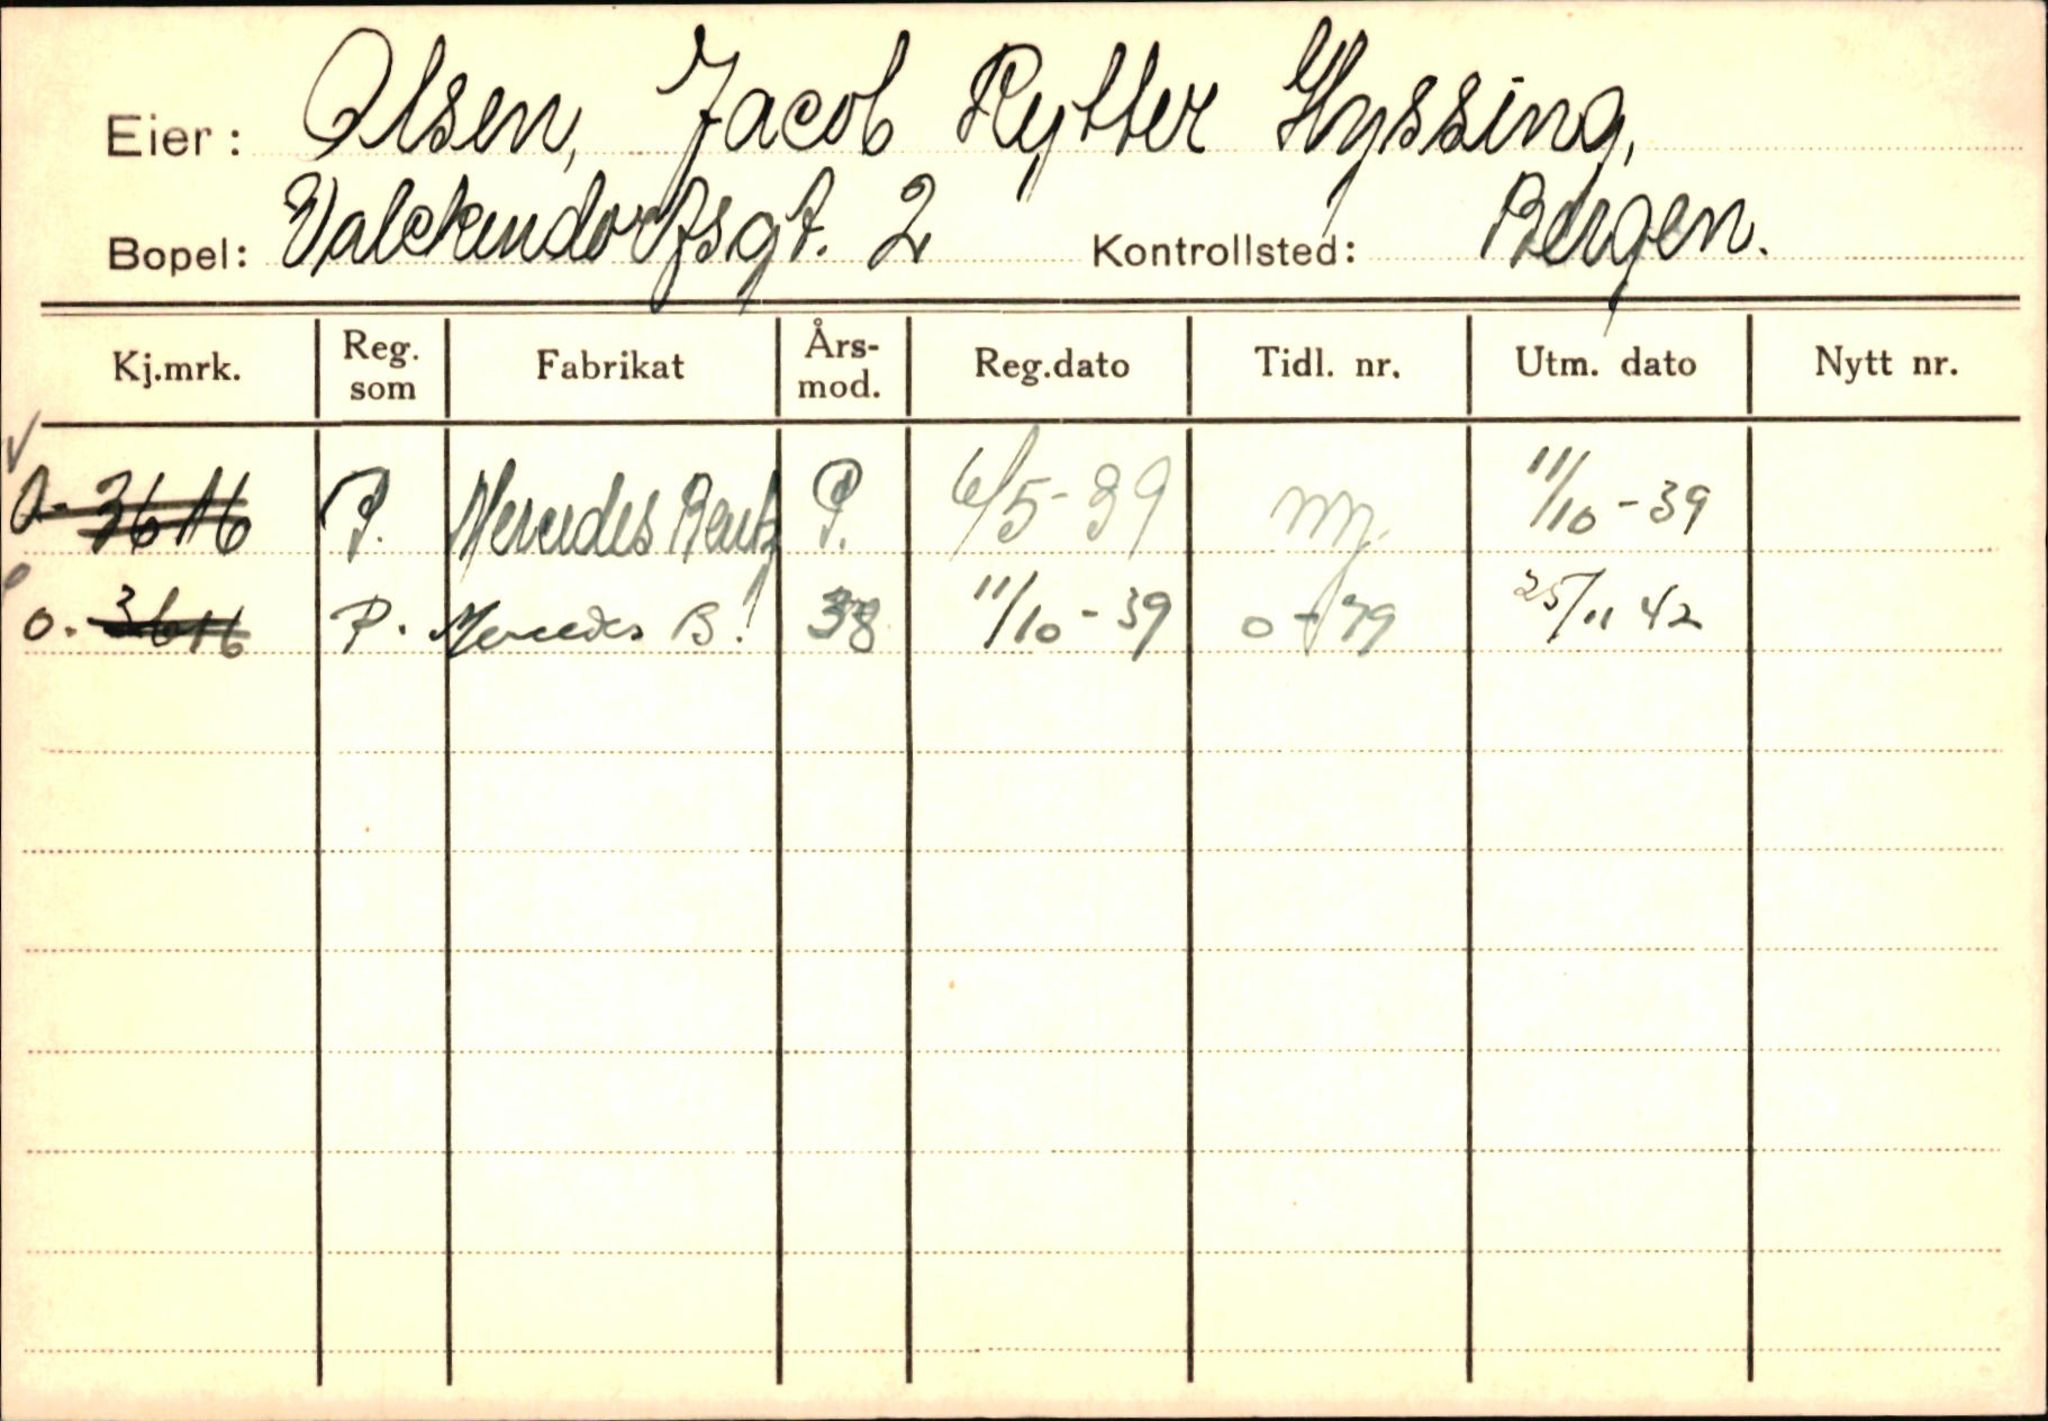 Eier: Olsen, Jacob Rytter Hyssing,
Bopel: Valckendorfsgt. 2 Kontrollsted: Bergen.
Kj.mrk. Reg. som Fabrikat Års- mod. Reg.dato Tidl. nr. Utm. dato Nytt nr.
O- 3616 P. Mercedes Bentz P. 6/5-39 ny. 11/10-39
O. 3616 P. Mercedes B. 38 11/10-39 O-79 25/11 42